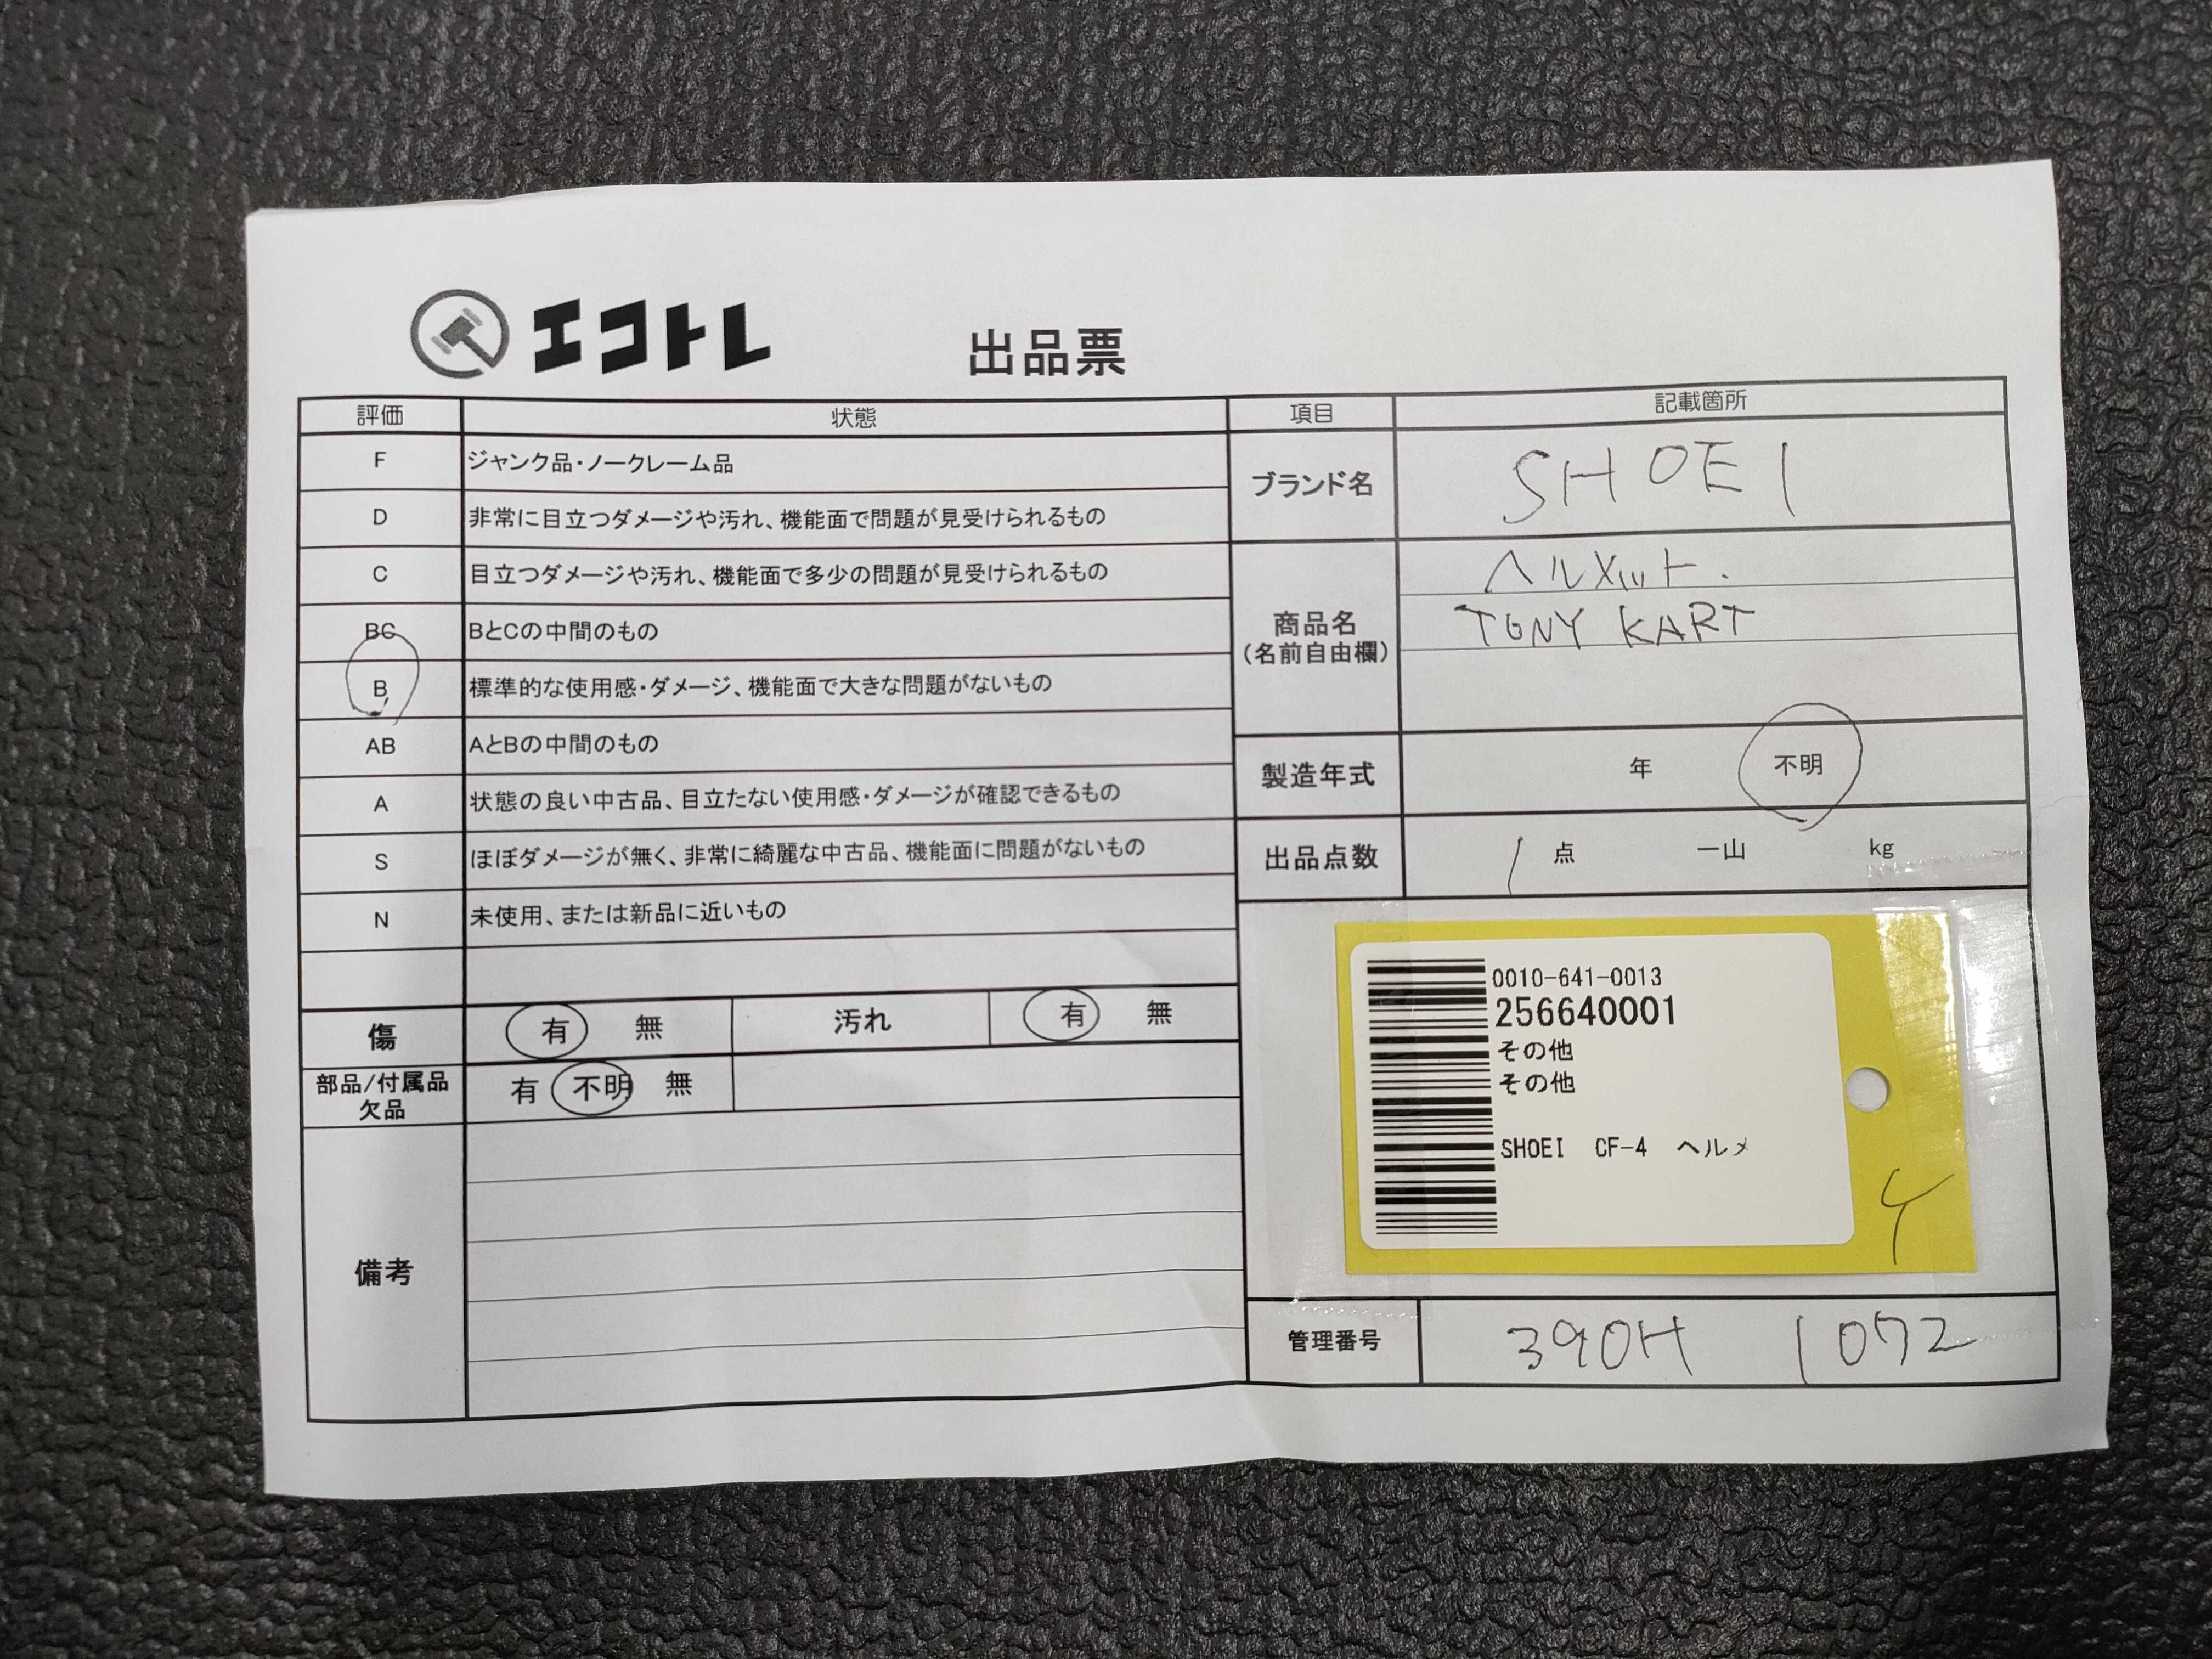 エコトレ
出品票
評価 状態
F ジャンク品・ノークレーム品
D 非常に目立つダメージや汚れ、機能面で問題が見受けられるもの
C 目立つダメージや汚れ、機能面で多少の問題が見受けられるもの
BC BとCの中間のもの
B 標準的な使用感・ダメージ、機能面で大きな問題がないもの
AB AとBの中間のもの
A 状態の良い中古品、目立たない使用感・ダメージが確認できるもの
S ほぼダメージが無く、非常に綺麗な中古品、機能面に問題がないもの
N 未使用、または新品に近いもの
傷 有 無 汚れ 有 無
部品/付属品
欠品
有 不明 無
備考
項目 記載箇所
ブランド名 SHOEI
商品名
(名前自由欄)
ヘルメット.
TONY KART
製造年式 年 不明
出品点数 1 点 一山 kg
0010-641-0013
256640001
その他
その他
SHOEI CF-4 ヘルメ
管理番号 390H 1072